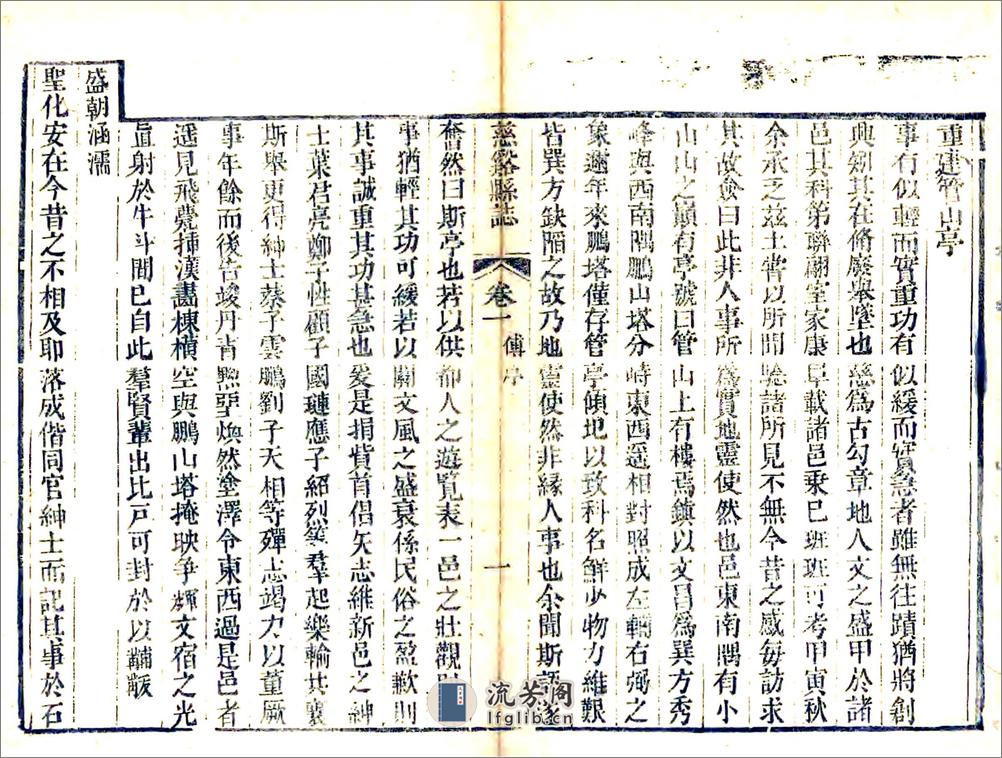 重建管山亭
事有似輕而實重功有似緩而實急者雖無往蹟猶將創
典矧其在脩廢舉墜也慈爲古勾章地人文之盛甲於諸
邑其科第聯翩室家康阜載諸邑乘已班班可考甲寅秋
余承乏茲土嘗以所聞驗諸所見不無今昔之感每訪求
其故僉曰此非人事所爲實地靈使然也邑東南隅有小
山山之巔有亭號曰管山上有樓焉鎮以文昌爲巽方秀
峰與西南隅鵬山塔分峙東西遥相對照成左輔右弼之
象邇年來鵬塔僅存管亭傾圮以致科名鮮少物力維艱
皆巽方缺陷之故乃地靈使然非緣人事也余聞斯語遂
慈谿縣誌
卷一
傅序
一
奮然曰斯亭也若以供都人之遊覽表一邑之壯觀則
事猶輕其功可緩若以關文風之盛衰係民俗之盈歉則
其事誠重其功甚急也爰是捐貲首倡矢志維新邑之紳
士葉君亮鄭子性顧子國璉應子紹烈等羣起樂輸共襄
斯舉更得紳士蔡子雲鵬劉子天相等殫志竭力以董厥
事年餘而後告竣丹青黝堊煥然塗澤令東西過是邑者
遥見飛甍挿漢畫棟橫空與鵬山塔掩映争輝文宿之光
直射於牛斗間已自此羣賢輩出比戸可封於以黼黻
盛朝涵濡
聖化安在今昔之不相及耶落成偕同官紳士而記其事於石
流芳閣
lfglib.cn